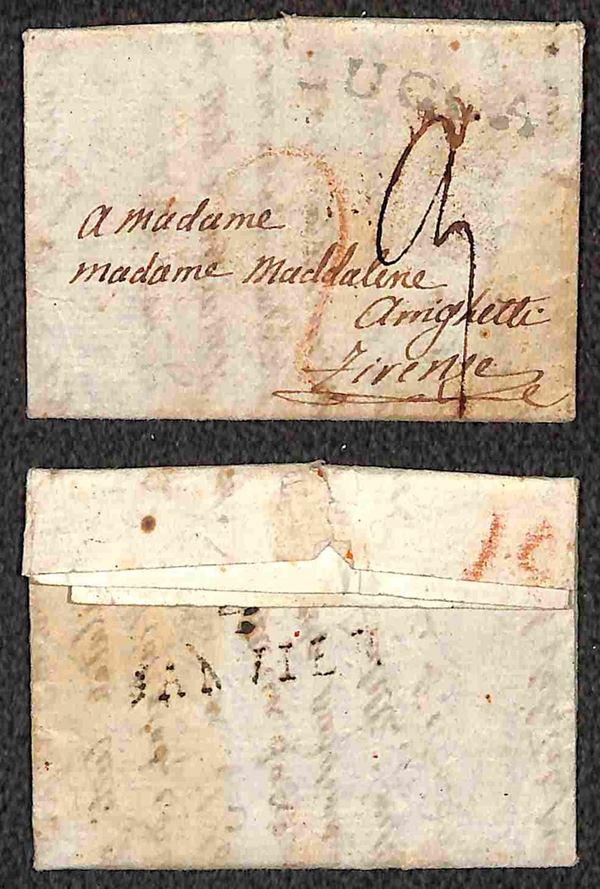 LUCCA
2
a madame
madame Maddalene
Arrighetti
Firense
JANVIER